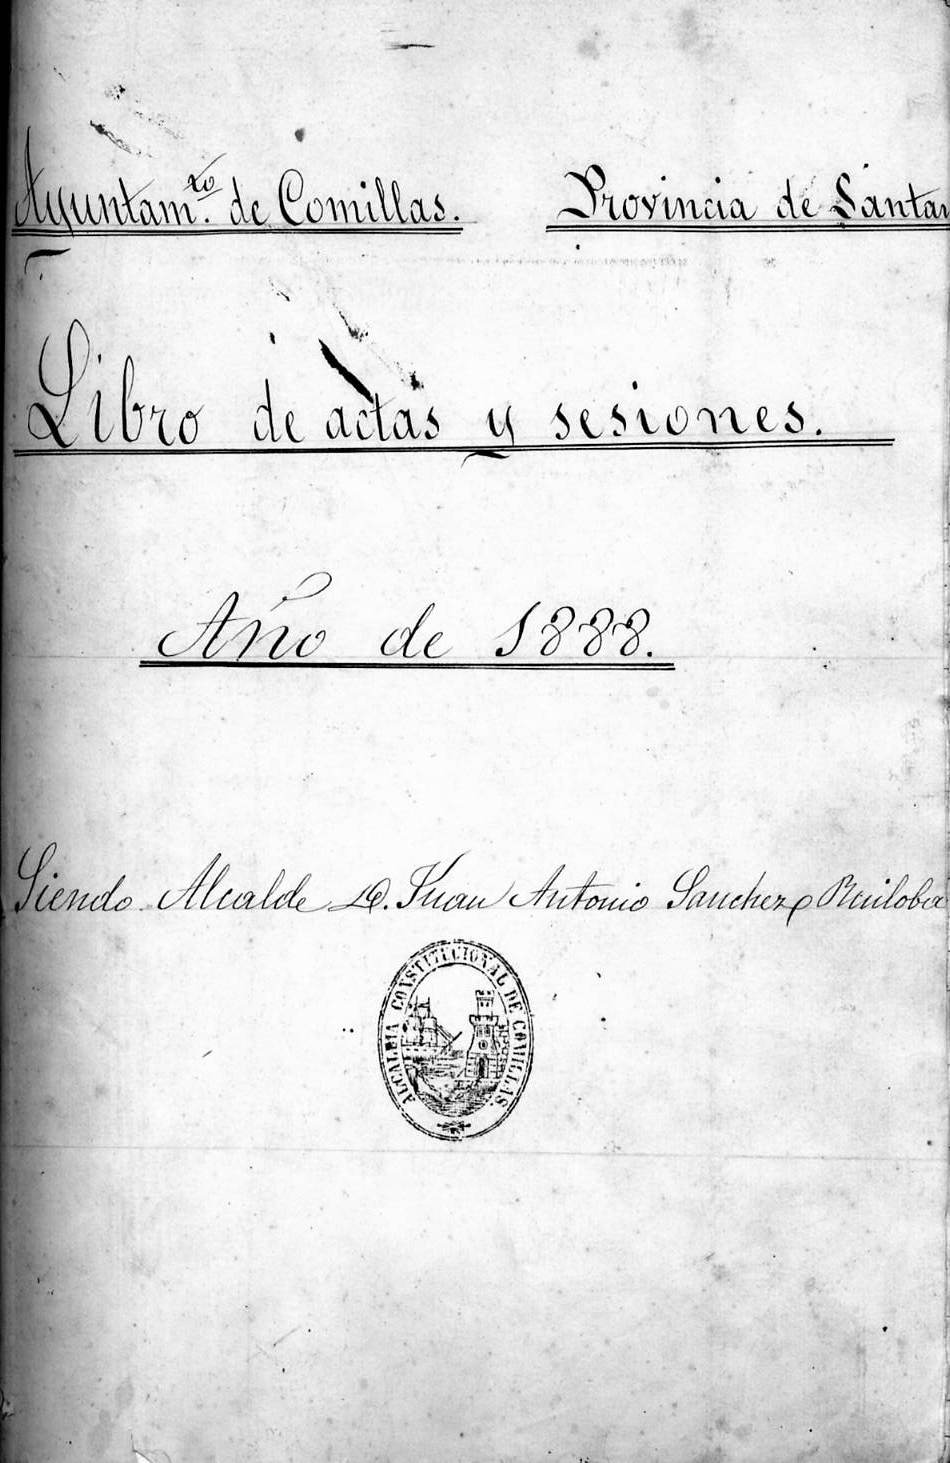 Ayuntam.to de Comillas. Provincia de Santan
Libro de actas y sesiones.
Año de 1888.
Siendo Alcalde D. Juan Antonio Sanchez Ruiloba
ALCALDIA CONSTITUCIONAL DE COMILLAS.